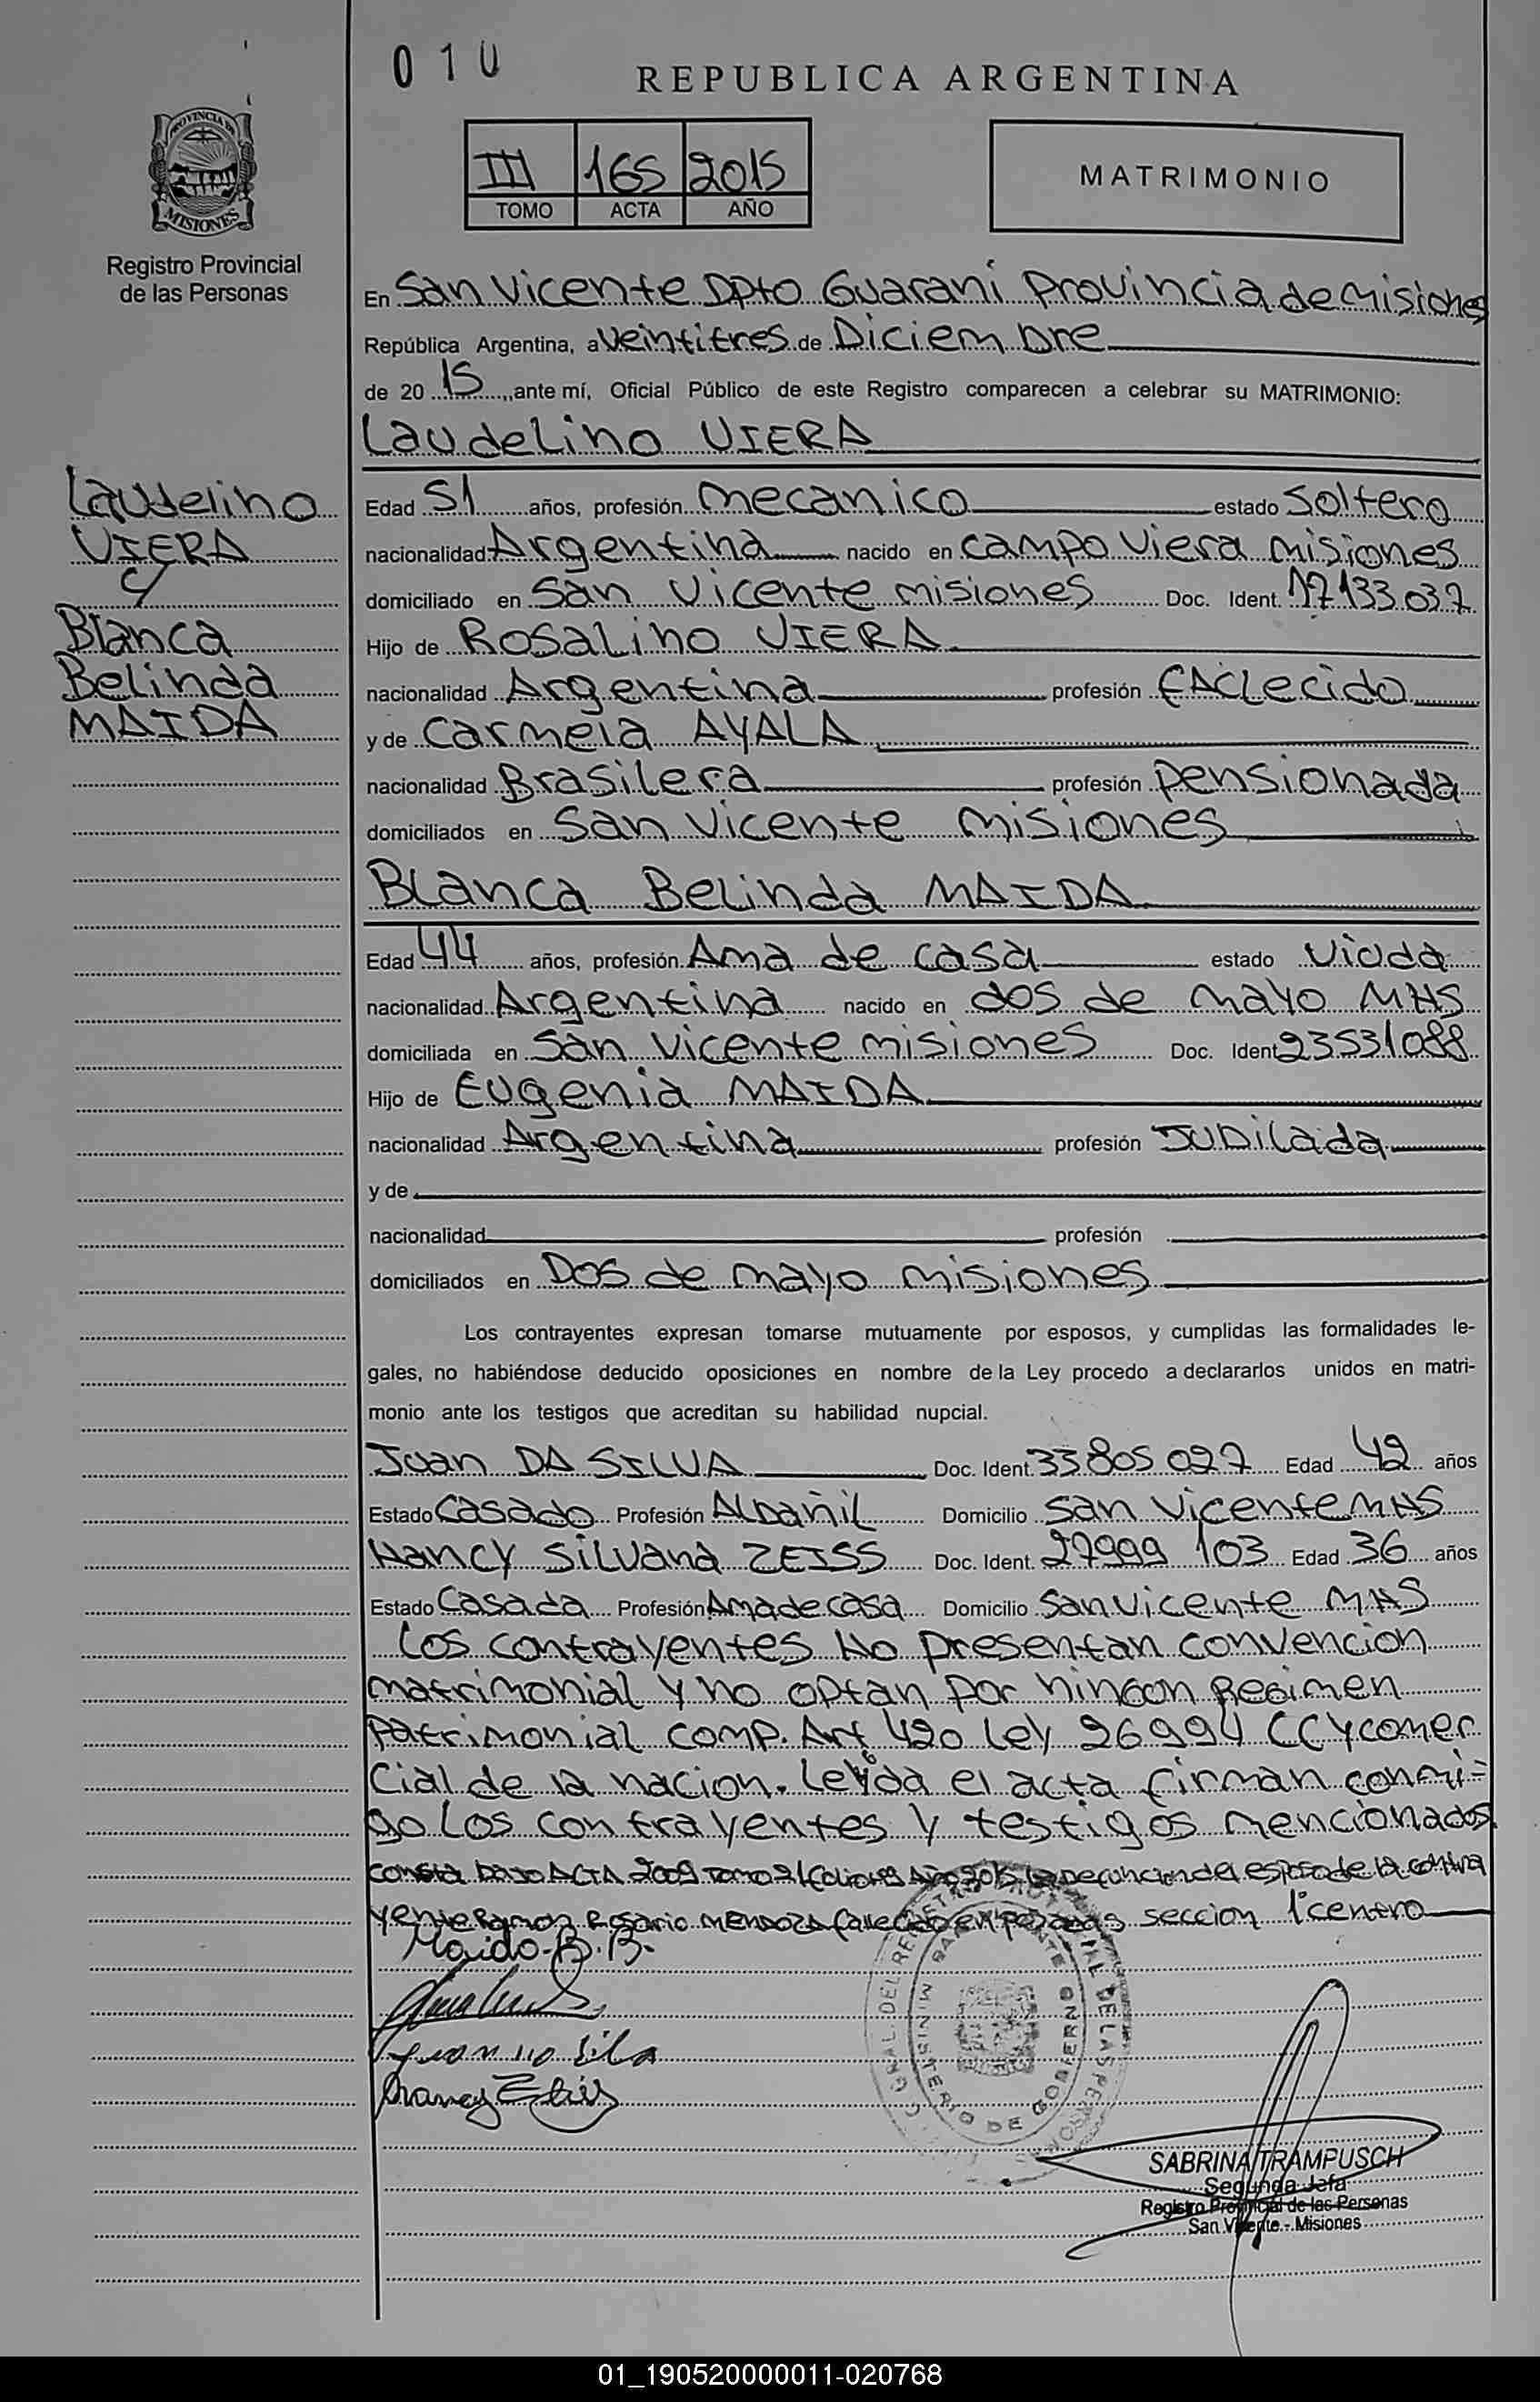 010
REPUBLICA ARGENTINA
III 165 2015
TOMO ACTA AÑO
MATRIMONIO
PROVINCIA DE
MISIONES
Registro Provincial
de las Personas
En San Vicente Dpto Guaraní Provincia de Misiones
República Argentina, a Veintitres de Diciembre
de 20 15 ,,ante mí, Oficial Público de este Registro comparecen a celebrar su MATRIMONIO:
Laudelino VIERA
Laudelino
VIERA
y
Blanca
Belinda
MAIDA
Edad 51 años, profesión mecanico estado Soltero
nacionalidad Argentina nacido en campo Viera misiones
domiciliado en San Vicente misiones Doc. Ident. 17133.037
Hijo de Rosalino VIERA
nacionalidad Argentina profesión FAClecido
y de Carmela AYALA
nacionalidad Brasilera profesión pensionada
domiciliados en San Vicente misiones
Blanca Belinda MAIDA
Edad 44 años, profesión Ama de casa estado Viuda
nacionalidad Argentina nacido en dos de mayo MNS
domiciliada en San Vicente misiones Doc. Ident 23531088
Hijo de Eugenia MAIDA
nacionalidad Argentina profesión Jubilada
y de
nacionalidad profesión
domiciliados en Dos de mayo misiones
Los contrayentes expresan tomarse mutuamente por esposos, y cumplidas las formalidades le-
gales, no habiéndose deducido oposiciones en nombre de la Ley procedo a declararlos unidos en matri-
monio ante los testigos que acreditan su habilidad nupcial.
Juan DA SILVA Doc. Ident. 33805027 Edad 42 años
Estado Casado Profesión Albañil Domicilio San Vicente MNS
Nancy Silvana ZEISS Doc. Ident. 27999 103 Edad 36 años
Estado Casada Profesión Ama de casa Domicilio San Vicente MNS
Los contrayentes No presentan convencion
matrimonial y no optan por ningun Regimen
Patrimonial comp. Art 420 Ley 26994 CC y comer
cial de la nacion. Leida el acta firman conmi-
go Los contrayentes y testigos mencionados
consta bajo ACTA 2009 Tomo Año 2015 la Defuncion del esposo de la contra
yente Ramon Rosario MENDOZA fallecido en posadas seccion 1º centro
Maida B. B.
Nancy Zeiss
MINISTERIO DE GOBIERNO
SABRINA TRAMPUSCH
Segunda Jefa
Registro Provincial de las Personas
San Vicente - Misiones
01_190520000011-020768